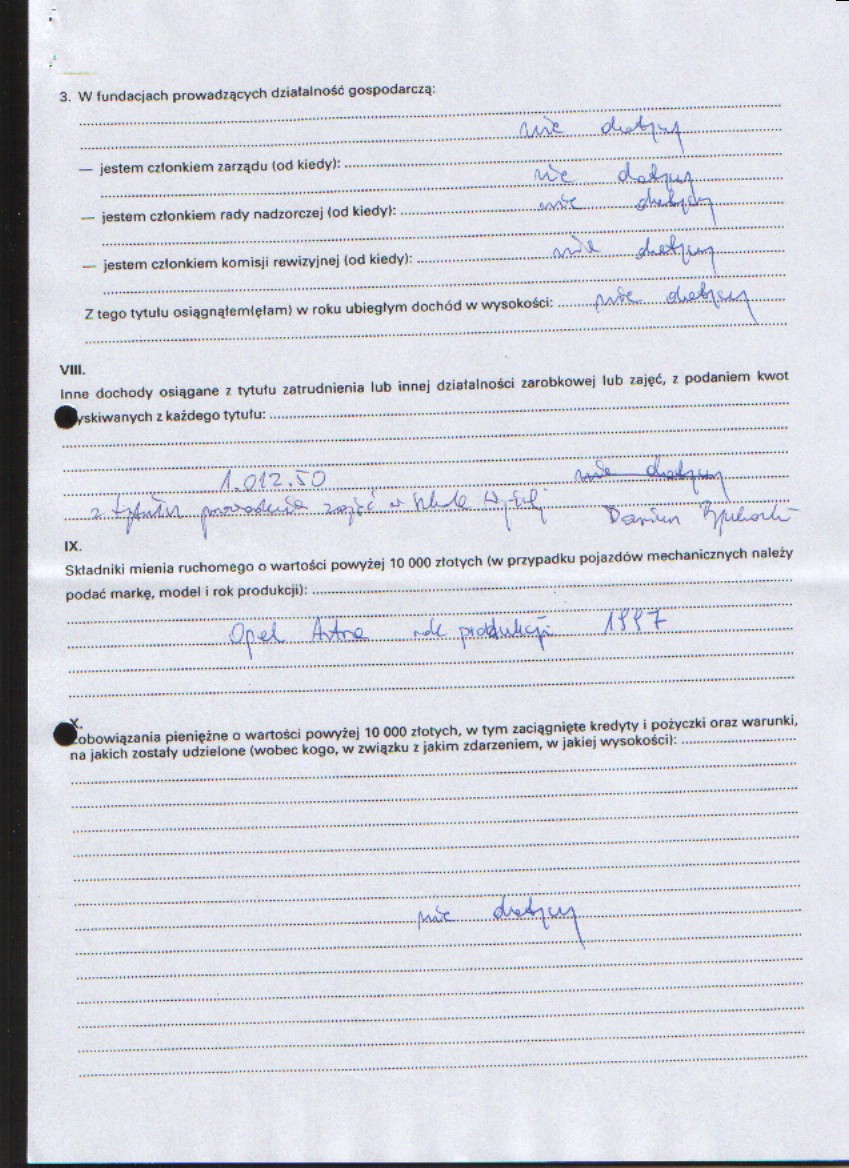 3. W fundacjach prowadzących działalność gospodarczą:
nie dotyczy
— jestem członkiem zarządu (od kiedy):
nie dotyczy
— jestem członkiem rady nadzorczej (od kiedy): nie dotyczy
— jestem członkiem komisji rewizyjnej (od kiedy): nie dotyczy
Z tego tytułu osiągnąłem(ęłam) w roku ubiegłym dochód w wysokości: nie dotyczy
VIII.
Inne dochody osiągane z tytułu zatrudnienia lub innej działalności zarobkowej lub zajęć, z podaniem kwot
yskiwanych z każdego tytułu:
1.012.50 nie dotyczy
z tytułu prowadzenia zajęć w Szkole Damian
IX.
Składniki mienia ruchomego o wartości powyżej 10 000 złotych (w przypadku pojazdów mechanicznych należy
podać markę, model i rok produkcji):
Opel Astra rok produkcji 1997
X.
obowiązania pieniężne o wartości powyżej 10 000 złotych, w tym zaciągnięte kredyty i pożyczki oraz warunki,
na jakich zostały udzielone (wobec kogo, w związku z jakim zdarzeniem, w jakiej wysokości):
nie dotyczy